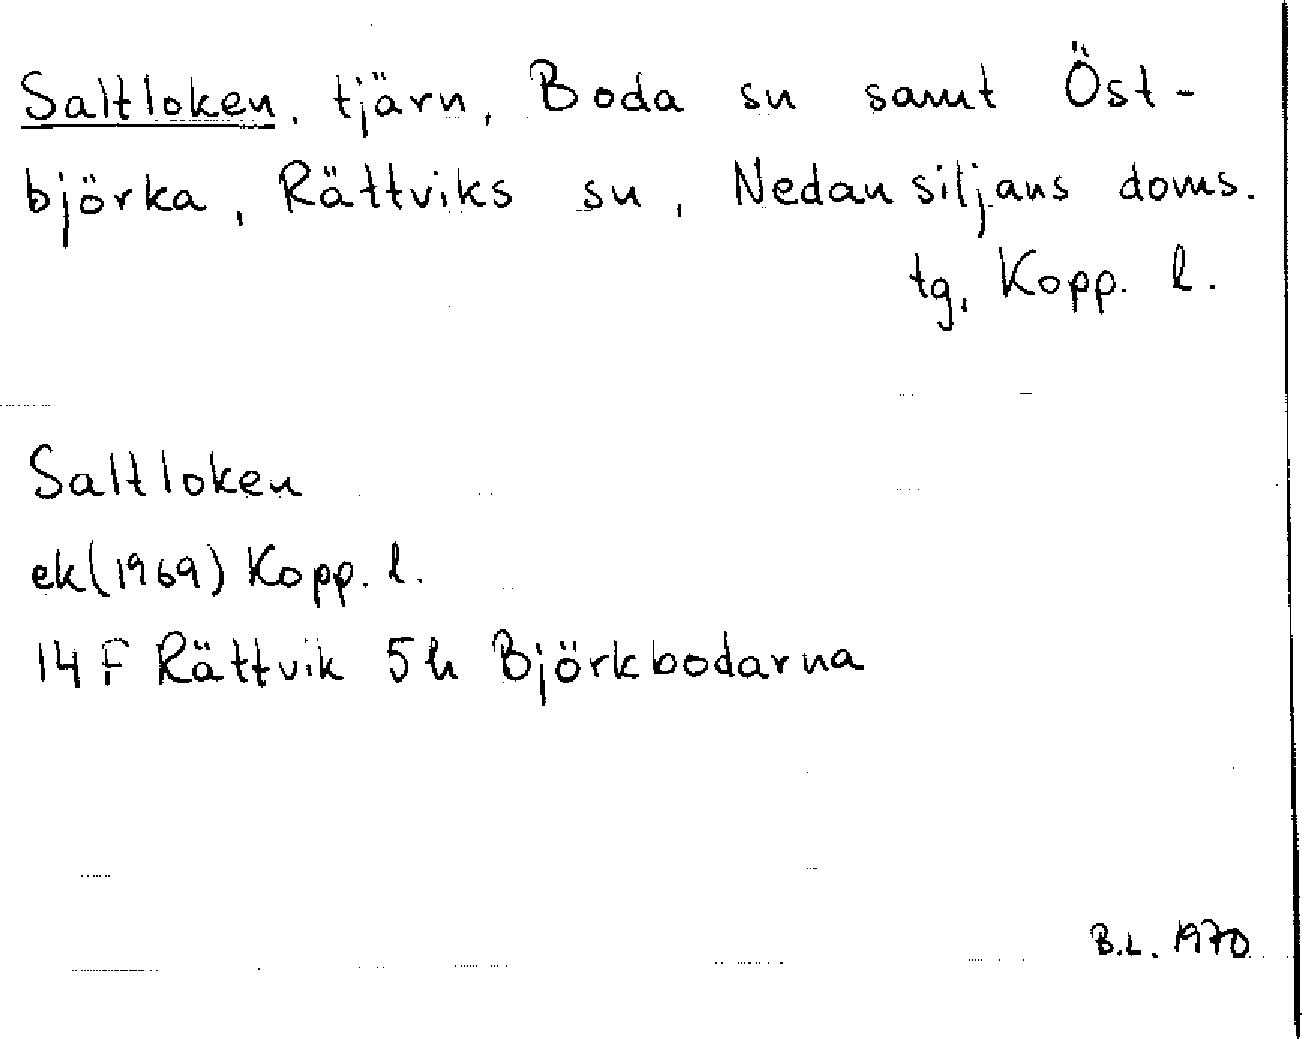 Saltloken, tjärn, Boda sn samt Öst-
björka, Rättviks sn, Nedansiljans doms.
tg, Kopp. l.
Saltloken
ek(1969) Kopp. l.
14 F Rättvik 5h Björkbodarna
B.L. 1970